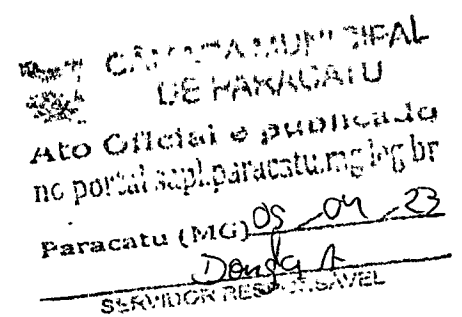 CÂMARA MUNICIPAL
DE PARACATU
Ato Oficial e publicado
no portal sapl.paracatu.mg.leg.br
Paracatu (MG) 05 / 04 / 23
SERVIDOR RESPONSÁVEL